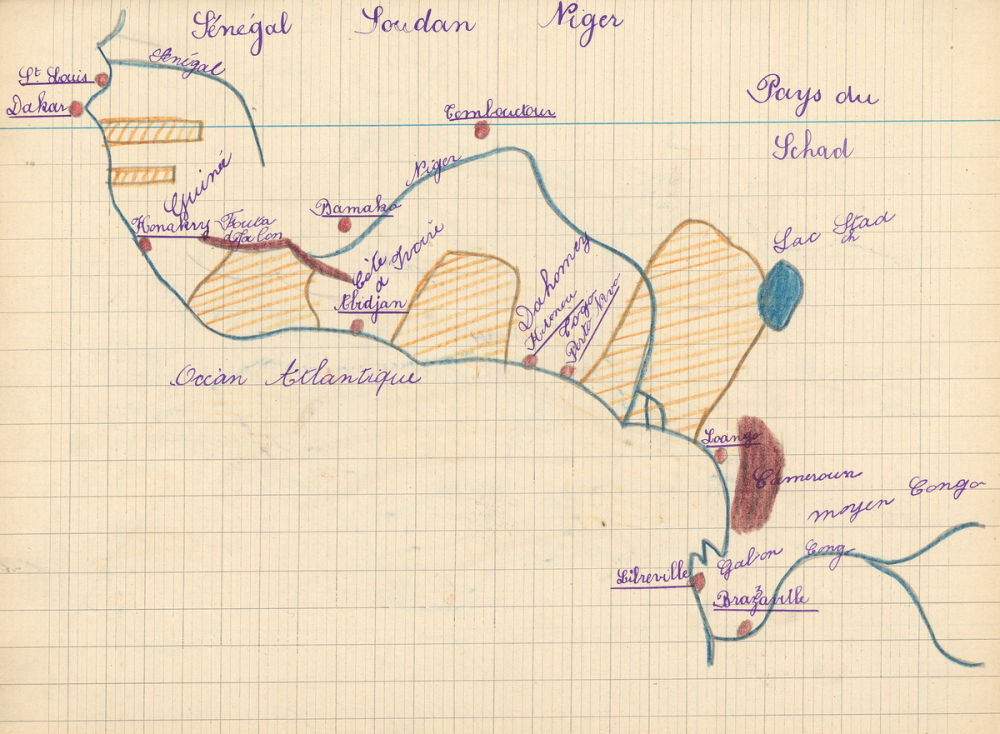 Sénégal Soudan Niger
Sénégal
St Louis
Dakar
Tombouctou
Pays du
Schad
Niger
Guinée
Bamako
Konakry
Fouta
djalon
Côte
d'Ivoire
Abidjan
Dahomey
Togo
Porto Novo
Lac Stad
ch
Océan Atlantique
Loango
Cameroun
moyen Congo
Gabon Cong
Libreville
Brazaville
z